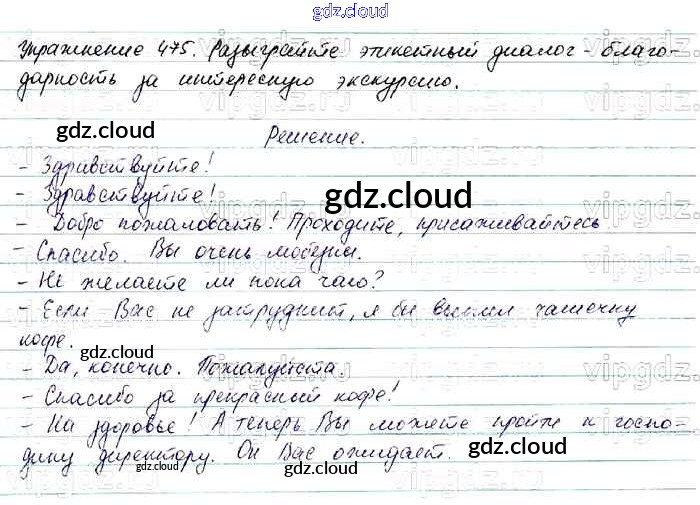 gdz.cloud
Упражнение 475. Разыграйте этикетный диалог - благо-
дарность за интересную экскурсию.
gdz.cloud
Решение.
- Здравствуйте!
- Здравствуйте!
gdz.cloud
- Добро пожаловать! Проходите, присаживайтесь.
- Спасибо. Вы очень любезны.
- Не желаете ли пока чаю?
- Если Вас не затруднит, я бы выпил чашечку
кофе.
gdz.cloud
- Да, конечно. Пожалуйста.
- Спасибо за прекрасный кофе!
gdz.cloud
- На здоровье! А теперь Вы можете пройти к госпо-
дину директору. Он Вас ожидает.
gdz.cloud
gdz.cloud